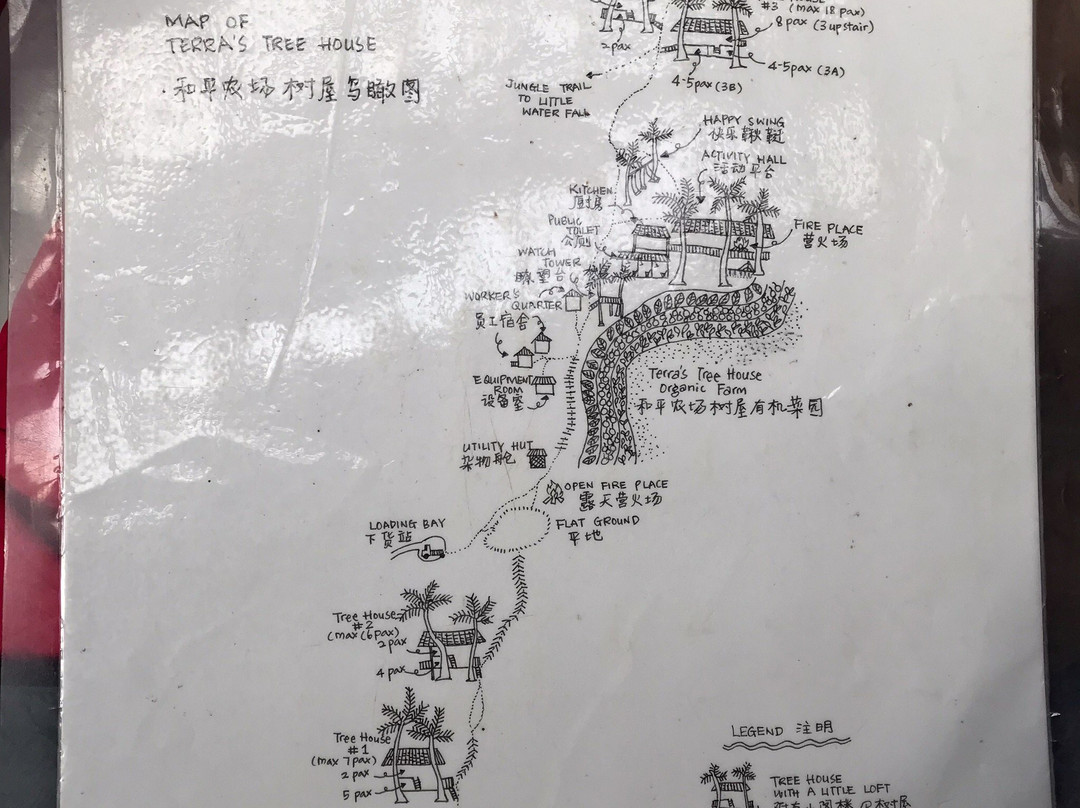 MAP OF
TERRA'S TREE HOUSE
·和平农场树屋鸟瞰图
#3 (max 18 pax)
8 pax (3 upstair)
2 pax
4-5 pax (3A)
4-5 pax (3B)
JUNGLE TRAIL
TO LITTLE
WATER FALL
HAPPY SWING
快乐鞦韆
ACTIVITY HALL
活动平台
KITCHEN
厨房
PUBLIC
TOILET
公厕
FIRE PLACE
营火场
WATCH
TOWER
瞭望台
WORKER'S
QUARTER
员工宿舍
EQUIPMENT
ROOM
设备室
Terra's Tree House
Organic Farm
和平农场树屋有机菜园
UTILITY HUT
杂物舱
OPEN FIRE PLACE
露天营火场
LOADING BAY
下货站
FLAT GROUND
平地
Tree House
#2
(max (6 pax)
2 pax
4 pax
Tree House
#1
(max 7 pax)
2 pax
5 pax
LEGEND 注明
TREE HOUSE
WITH A LITTLE LOFT